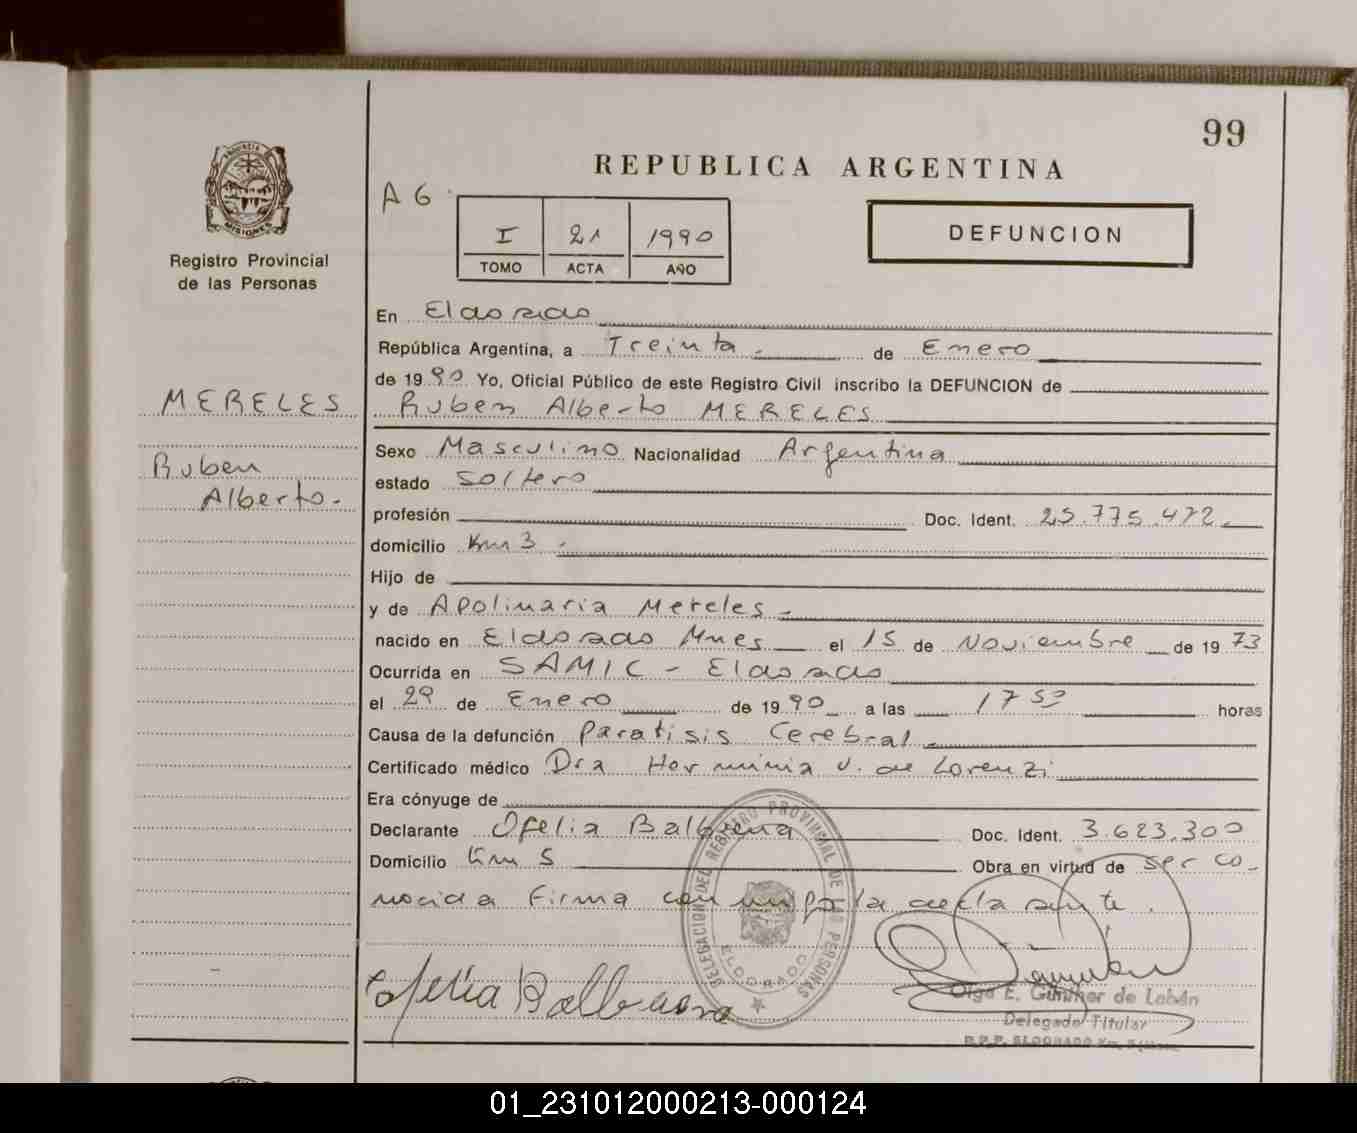 99
REPUBLICA ARGENTINA
A G
I 21 1990
TOMO ACTA AÑO
DEFUNCION
PROVINCIA DE MISIONES
Registro Provincial
de las Personas
MERELES
Ruben
Alberto.-
En Eldorado
República Argentina, a Treinta.- de Enero
de 1990 Yo, Oficial Público de este Registro Civil inscribo la DEFUNCION de
Ruben Alberto MERELES
Sexo Masculino Nacionalidad Argentina
estado Soltero
profesión Doc. Ident. 25.775.472.
domicilio Km 3.
Hijo de
y de Apolinaria Mereles.-
nacido en Eldorado Mnes el 15 de Noviembre de 1973
Ocurrida en SAMIC - Eldorado
el 29 de Enero de 1990 a las 17 50 horas
Causa de la defunción Paratisis Cerebral.-
Certificado médico Dra Herminia V. de Lorenzi
Era cónyuge de
Declarante Ofelia Balbuena Doc. Ident. 3.623.300
Domicilio Km 5 Obra en virtud de ser co-
nocida firma conmigo la declarante.
DELEGACION DEL REGISTRO PROVINCIAL DE LAS PERSONAS
ELDORADO
Ofelia Balbuena
Olga E. Günther de Labán
Delegada Titular
R.P.P. ELDORADO Km.
01_231012000213-000124